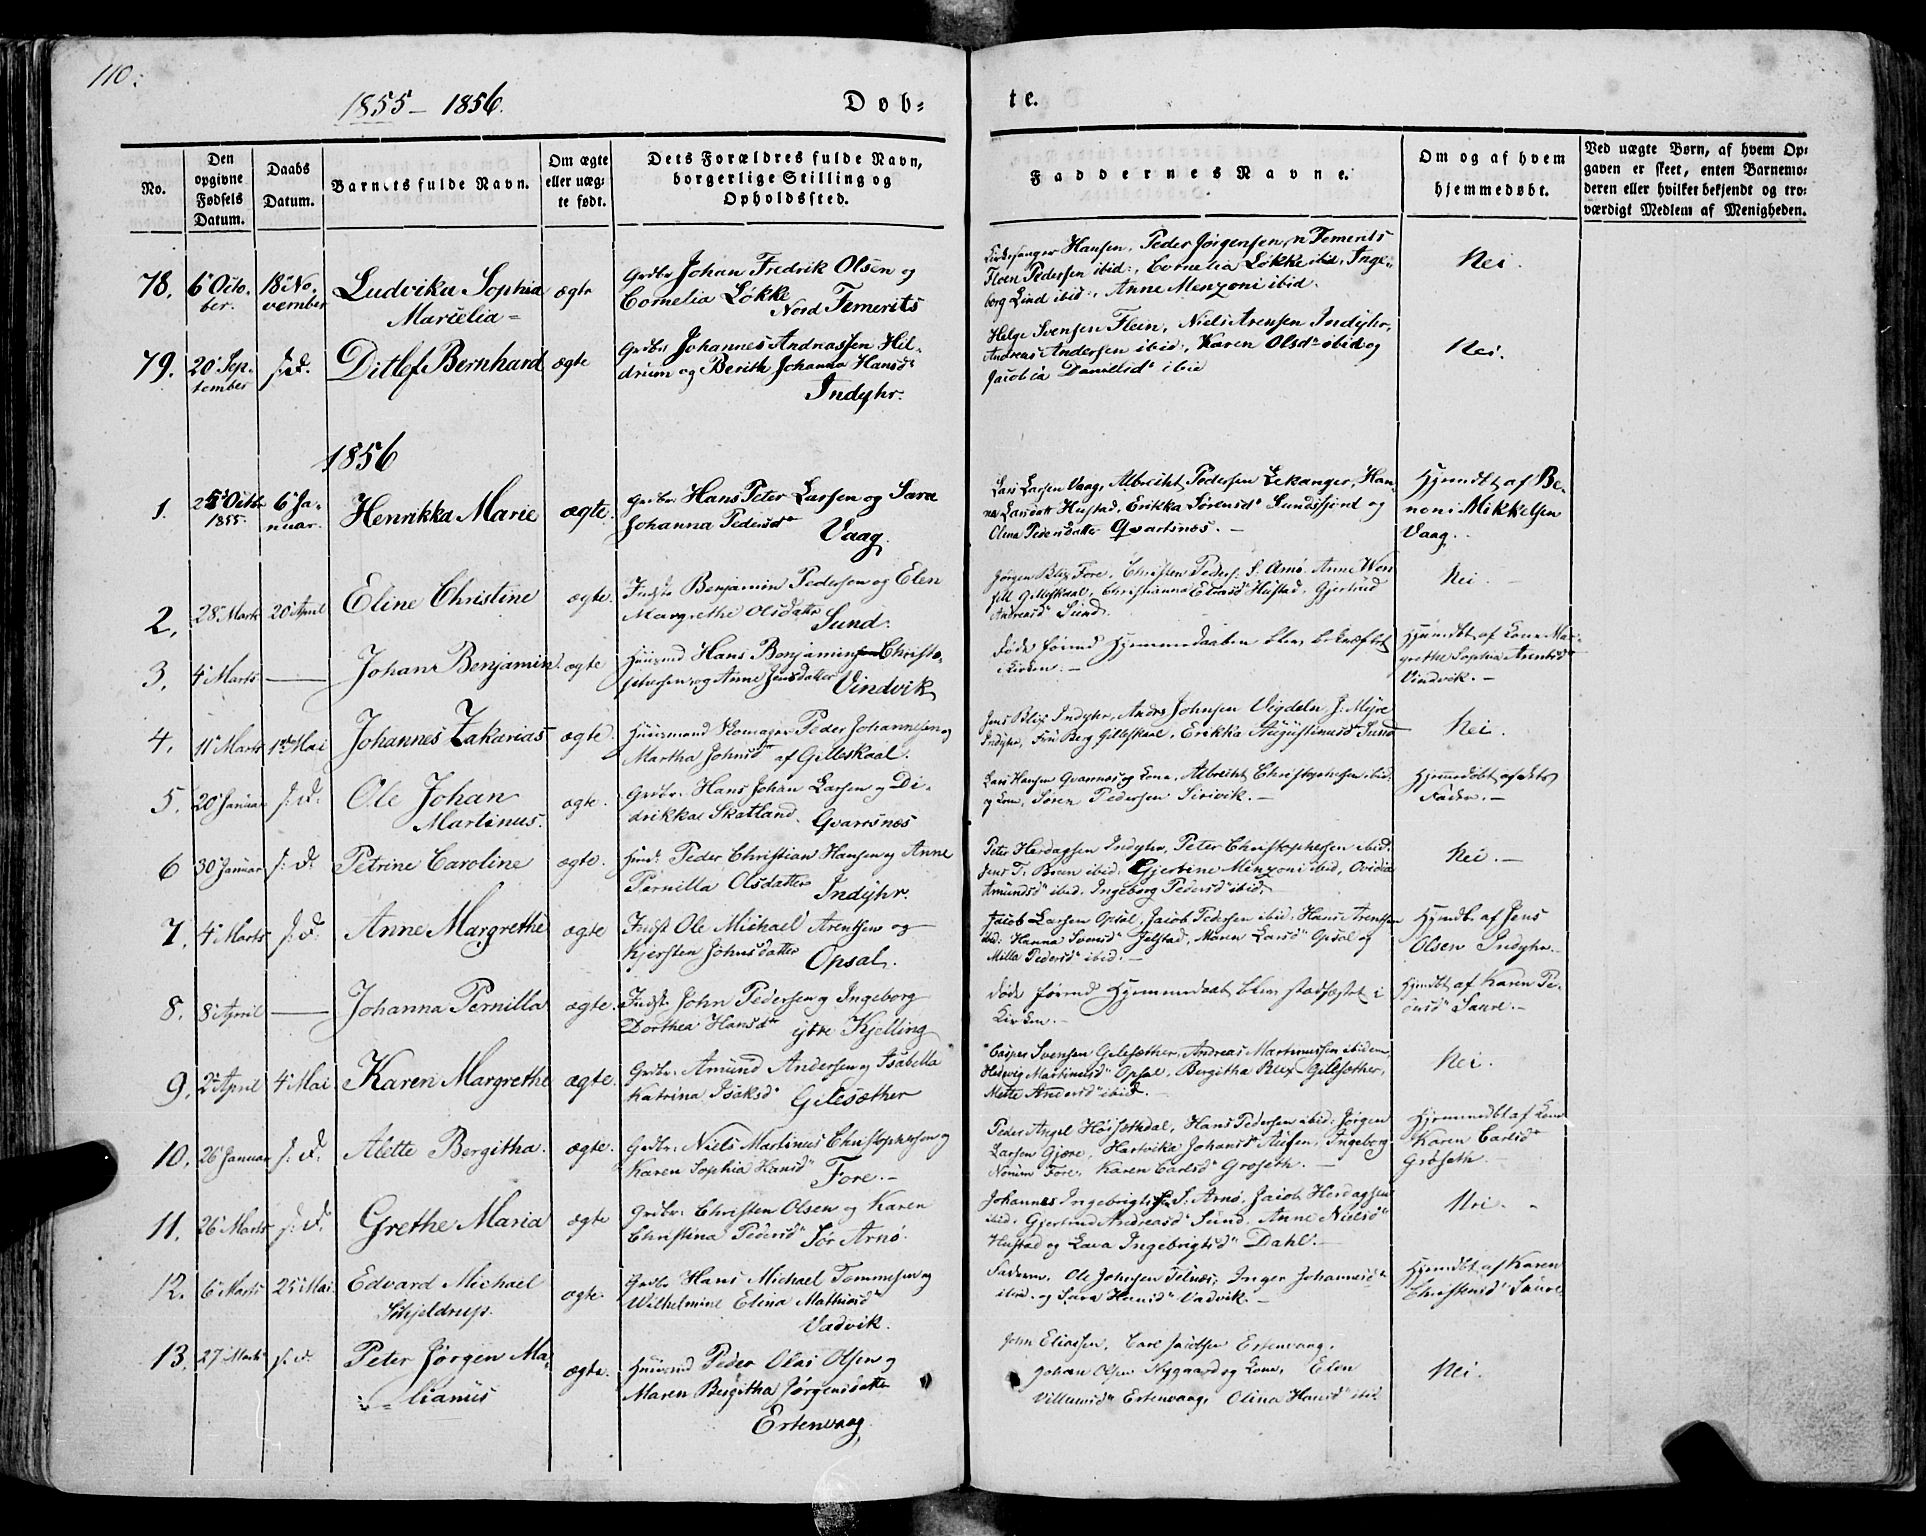 110:
1855 – 1856.
Døb-
te.
No.
Den opgivne Fødsels Datum.
Daabs Datum.
Barnets fulde Navn.
Om ægte eller uægte født.
Dets Forældres fulde Navn, borgerlige Stilling og Opholdssted.
Faddernes Navne.
Om og af hvem hjemmedøbt.
Ved uægte Børn, af hvem Opgaven er skeet, enten Barnemoderen eller hvilket bekjendt og troværdigt Medlem af Menigheden.
78. 6 October. 18 November Ludvika Sophia Marielia ægte
Grdbr Johan Fredrik Olsen og
Cornelia Løkke
Nord Femerits
Kirkesanger Hansen, Peder Jørgensen, n Femerits
Pedersen ibid:, Cornelia Løkke ibid, Inge-
borg Lind ibid:, Anne Menzoni ibid.
Nei.
79. 20 September s. d. Ditlef Bernhard ægte
Grdbr Johannes Andreassen Hil-
drum og Berith Johanna Hansd
Indyhr.
Helge Svensen Flein, Niels Arensen Indyhr,
Andreas Andersen ibid:, Karen Olsd ibid og
Jacobia Danielsd ibid
Nei.
1856
1. 25 Octbr 1855. 6 Januar. Henrikka Marie ægte.
Grdbr: Hans Peter Larsen og Sara
Johanna Pedersd
Vaag.
Lars Larsen Vaag, Albrecht Pedersen Lekanger, Han-
na Larsdatt Hustad, Erikka Sørensd Sundsfjord og
Olena Pedersdatter Qvartsnæs. –
Hjemdt af Be-
noni Mikkelsen
Vaag.
2. 28 Marts 20 April Eline Christine ægte.
Indst Benjamin Pedersen og Elen
Margrethe Olsdatter
Sund.
Jørgen Blix Fore, Christen Peders: S. Arnø. Anne
Gilleskaal, Christianna Hustad, Gjertrud
Andreasd Sund.
Nei. –
3. 4 Marts — Johan Benjamin ægte
Huusmd Hans Benjamin Christo-
phersen og Anne Jensdatter Vindvik
døde førend Hjemmedaaben blev bekræftet
i Kirken. –
Hjemdt af Kone Mar-
grethe Sophia
Vindvik. –
4. 11 Marts 1ste Mai Johannes Zakarias ægte.
Huusmand Skomager Peder Johannesen og
Martha Johnsd af Gilleskaal.
Jens Blix Indyhr, Andrs Johnsen Vigdeln, J: Myre
Indyhr, Fru Berg Gilleskaal, Erikka Augustinusd Sund
Nei.
5. 20 Januar s. d. Ole Johan Martinus. ægte.
Grdbr. Hans Johan Larsen og Di-
drikka Skatland Qvarsnæs
Lars Hansen Qvarsnæs og Kone, Albrecht Christophersen ibid.
og Kone, Søren Pedersen Sirivik. –
Hjemmedøbt af dets
Fader. –
6 30 Januar s. d. Petrine Caroline ægte.
Huusd: Peder Christian Hansen og Anne
Pernilla Olsdatter
Indyhr.
Peter Herdagsen Indyhr, Peter Christophersen ibid.
Jens T. Breen ibid. Gjertine Menzoni ibid, Ovidia
Amundsd ibid. Ingeborg Pedersd ibid.
Nei. –
7. 4 Marts s. d. Anne Margrethe ægte
Indst Ole Michael Arentsen og
Kjersten Johnsdatter Opsal.
Jacob Larsen Opsal, Jacob Pedersen ibid: Hans Arentsen
ibid: Hanna Svensd Jelstad, Maren Larsd Opsal og
Milla Pedersd ibid. –
Hjmdb. af Jens
Olsen Indyhr.
8. 8 April — Johanna Pernilla ægte.
Indst. John Pedersen og Ingeborg
Dorthea Hansd ytre Kjelling
døde førend Hjemmedaab blev stadfæstet i
Kirken. –
Hjmdt af Karen
Saure. –
9. 2 April 4 Mai Karen Margrethe ægte.
Grdbr. Amund Andersen og Isabella
Katrina Isaksd Gilesæther
Casper Svensen Gilesæther, Andreas Martinussen ibidem,
Hedevig Martinusd Opsal, Bergitha Blix Gilesæther,
Mette Andersd ibid.
Nei.
10. 26 Januar s. d. Alette Bergitha. ægte.
Grdbr: Niels Martinus Christophersen og
Karen Sophia Hansd Fore. –
Peder Angel Høisethdal, Hans Pedersen ibid: Jørgen
Larsen Gjære, Hartvika Johansd Ausen, Ingeborg
Fore, Karen Carlsd Grøseth. –
Hjemmedbt af Kone
Karen Carlsd
Grøseth. –
11. 26 Marts s. d. Grethe Maria ægte
Grdbr: Christen Olsen og Karen
Christina Pedersd Sør Arnø.
Johannes Ingebrigtsen S. Arnø, Jacob Herdagsen
ibid. Gjertrud Andreasd Sund, Anne Nielsd
Hustad og Lava Ingebrigtsd Dahl. –
Nei.
12. 6 Marts 25 Mai Edvard Michael Schjeldrup. ægte.
Grdbr Hans Michael Tommesen og
Wilhelmine Elina Mathiasd
Vadvik.
Faderen, Ole Johnsen Telnæs, Inger Johannesd
ibid. og Sara Hansd Vadvik. –
Hjemdt af Karen
Christensd Saure
13. 27 Marts s. d. Peter Jørgen Ma-
lianus ægte.
Huusmd Peder Olai Olsen og
Maren Bergitha Jørgensdatter
Ertenvaag.
John Eliassen, Carl Jacobsen Ertenvaag,
Johan Olsen Nygaard og Kone, Elen
Villumsd Ertenvaag, Olina Hansd ibid.
Nei.